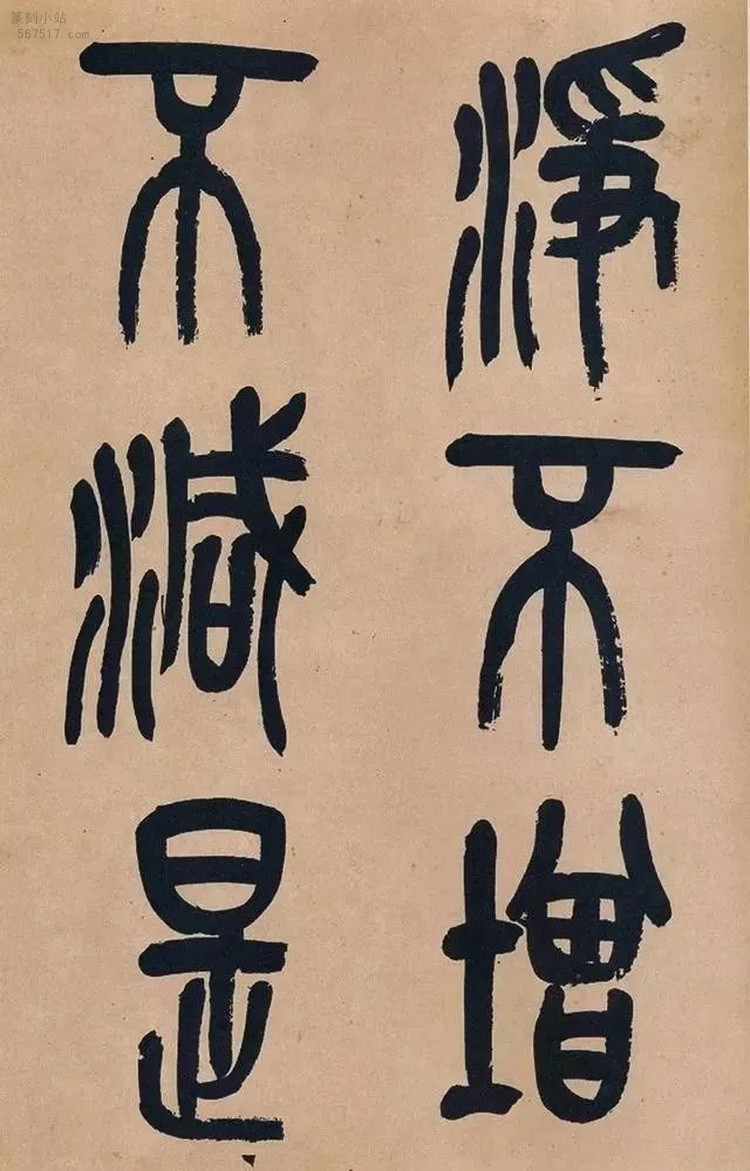 篆刻小站
567517.com
淨不增
不減是